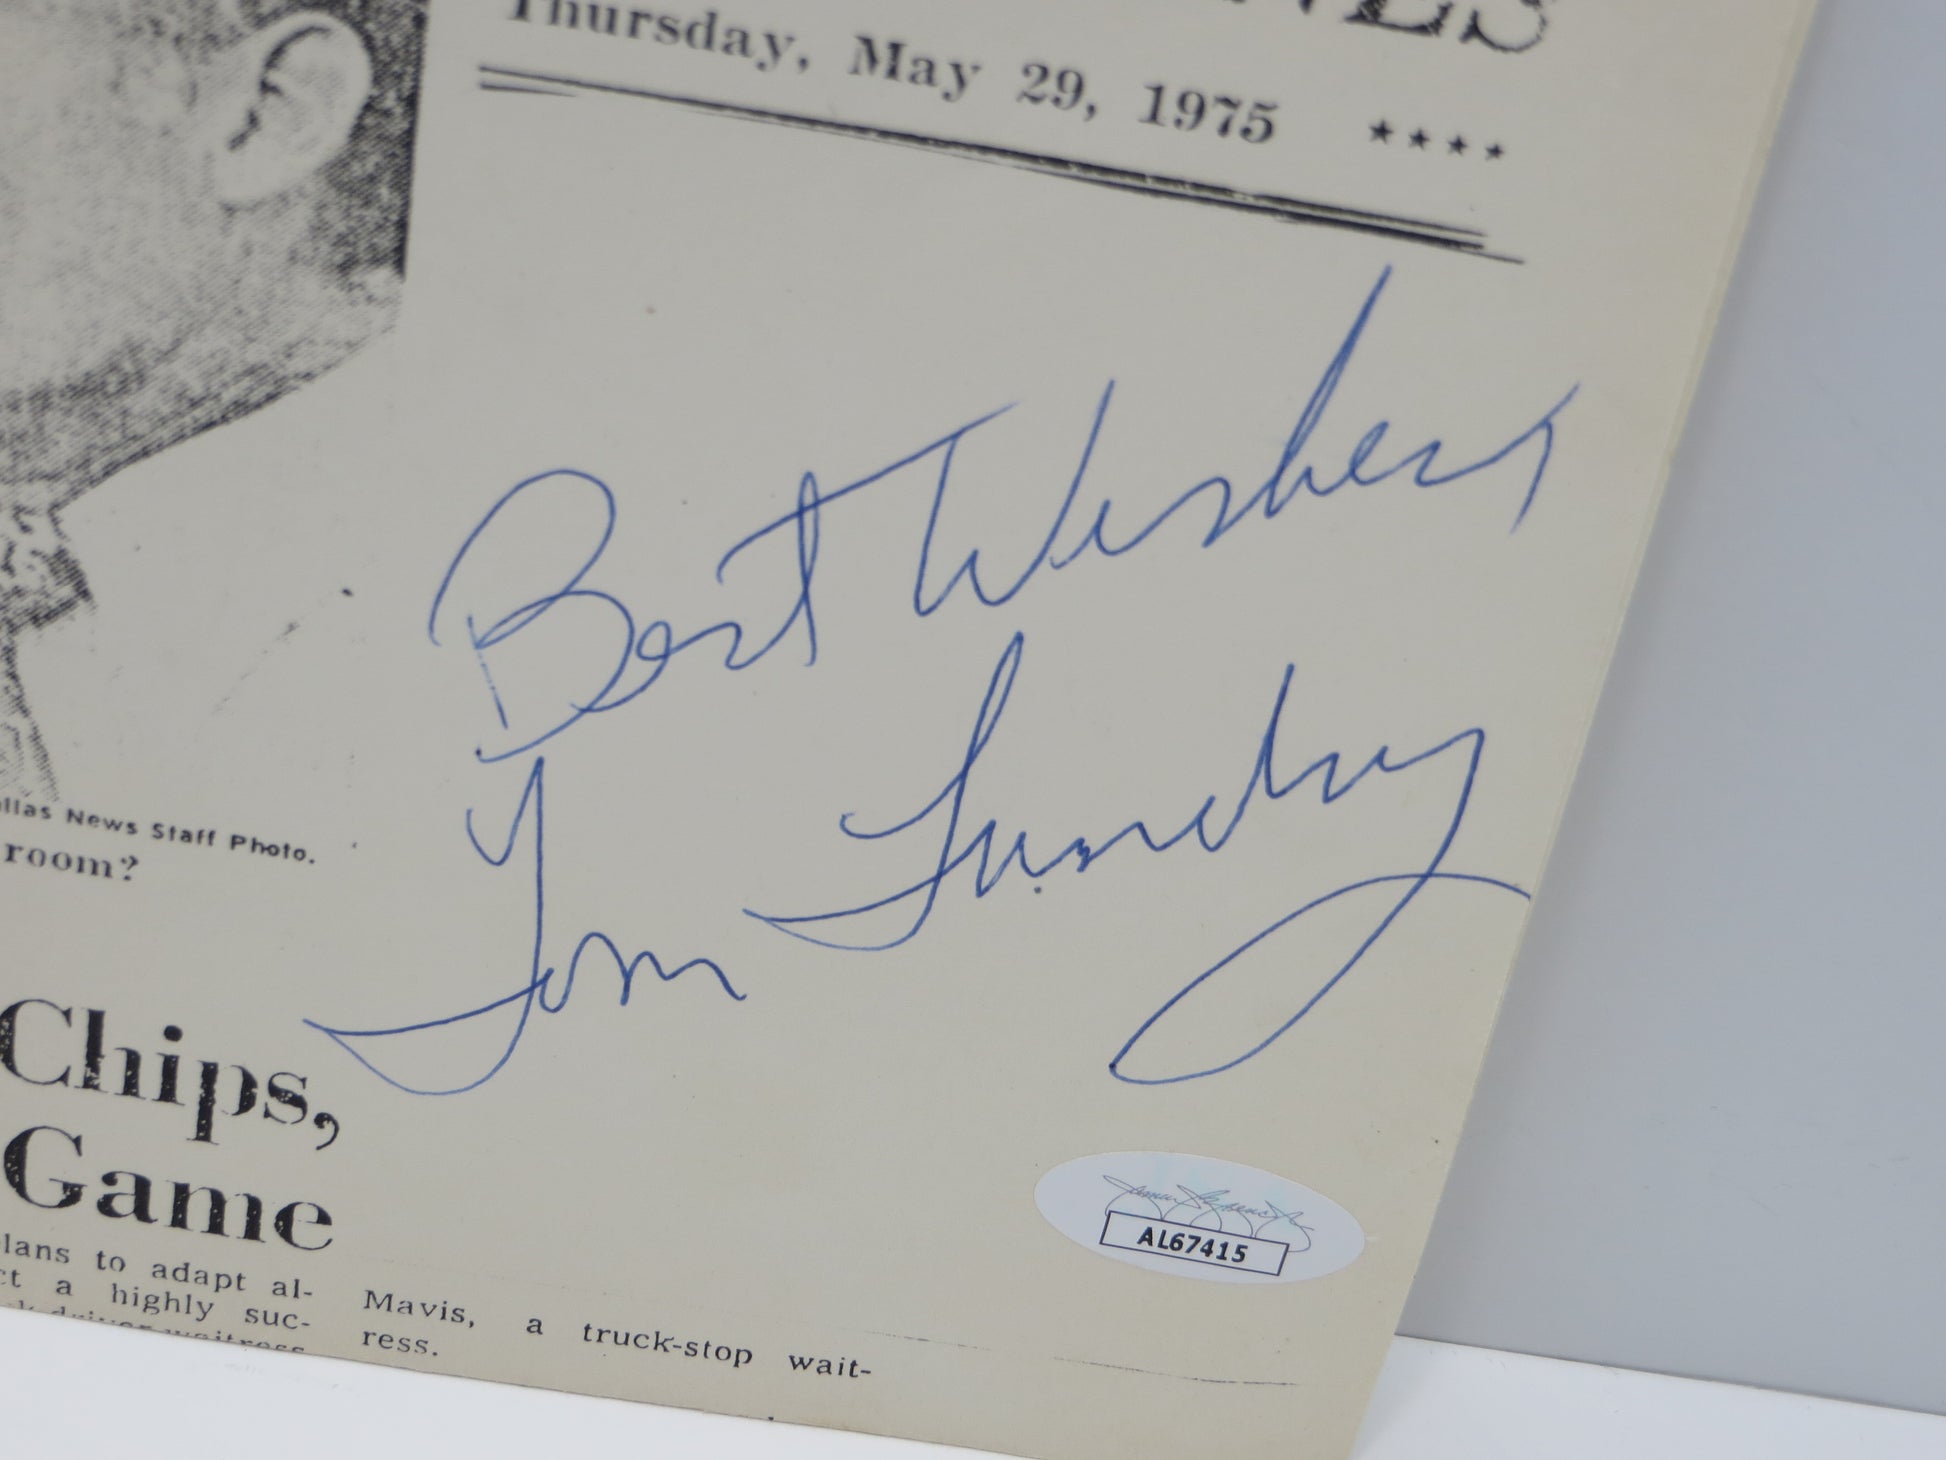 Thursday, May 29, 1975 ★★★★
Best Wishes
Tom Landry
llas News Staff Photo.
room?
Chips,
Game
lans to adapt al-
ct a highly suc-
Mavis, a truck-stop wait-
ress.
AL67415